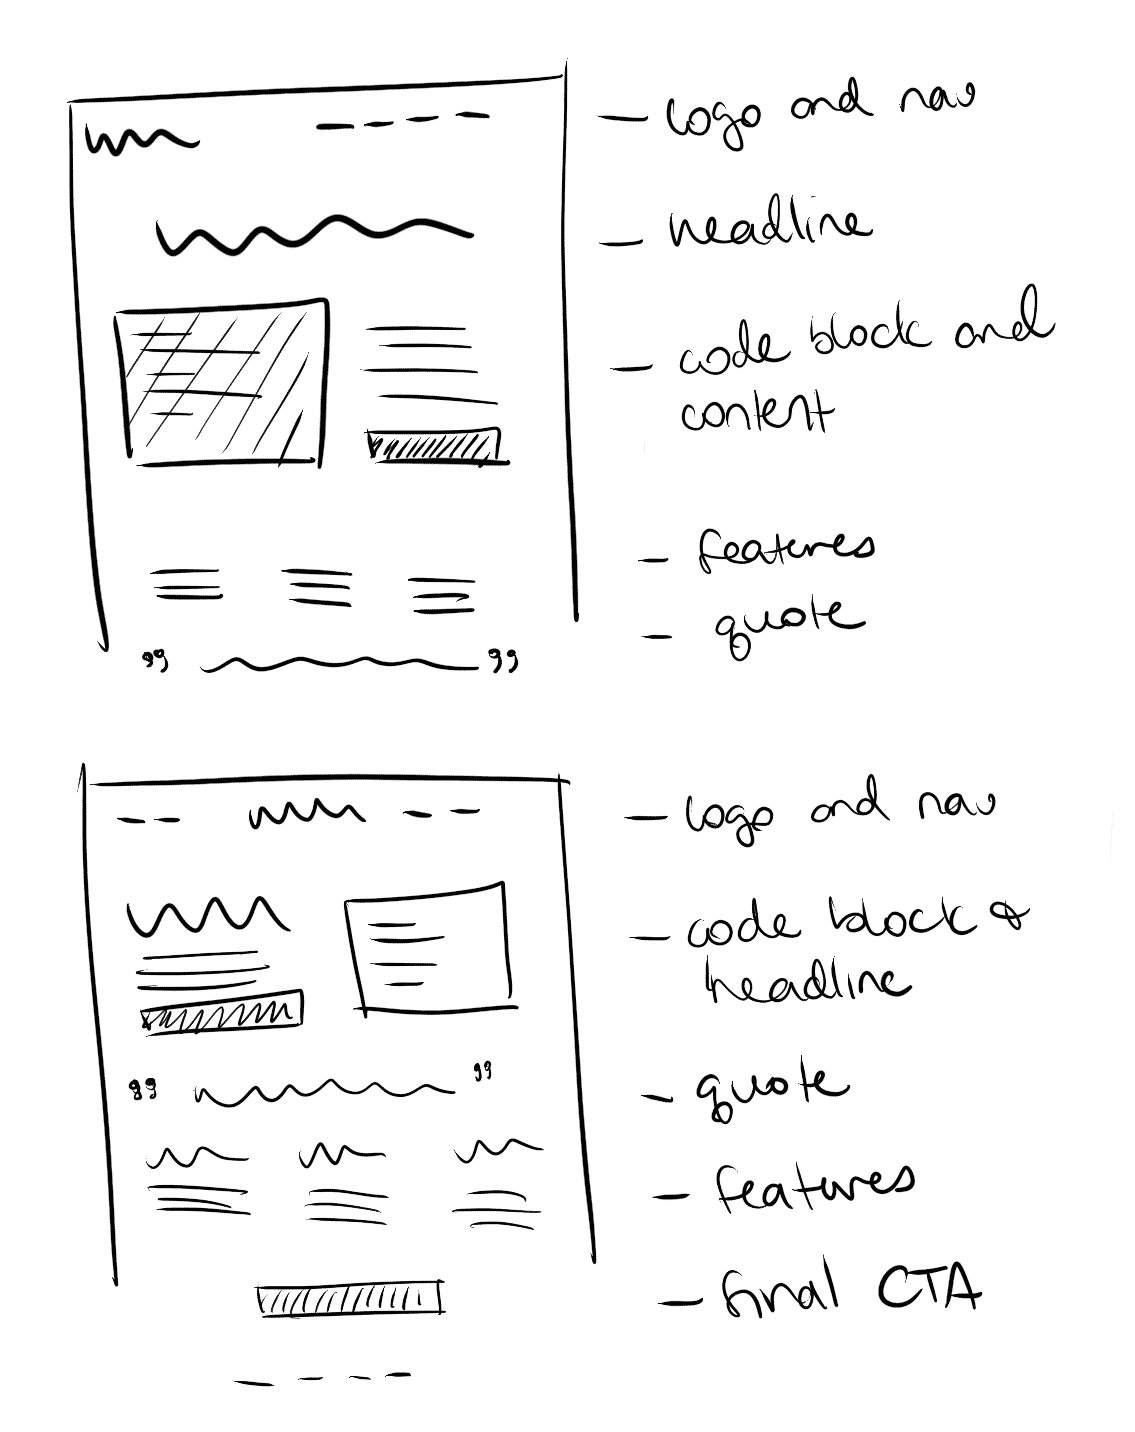 — logo and nav
— headline
— code block and
content
— features
— quote
— logo and nav
— code block &
headline
— quote
— features
— final CTA